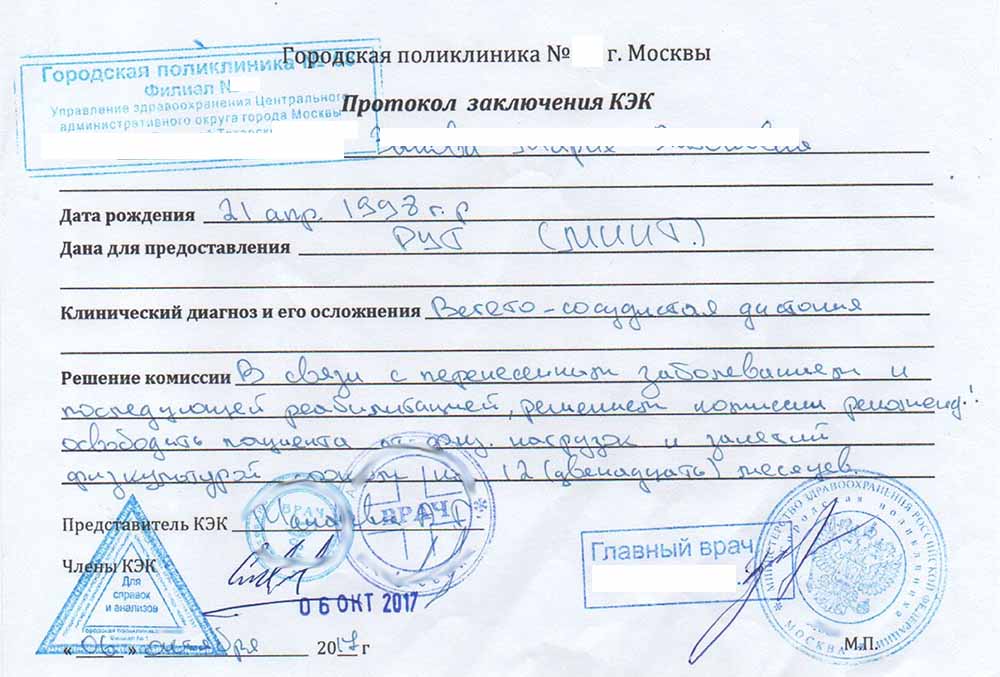 Городская поликлиника № г. Москвы
Городская поликлиника №
Филиал №
Управление здравоохранения Центрального
административного округа города Москвы
Протокол заключения КЭК
Дата рождения 21 апр. 1998 г.р
Дана для предоставления РУТ (МИИТ.)
Клинический диагноз и его осложнения Вегето-сосудистая дистония
Решение комиссии В связи с перенесенным заболеванием и
последующей реабилитацией, решением комиссии рекоменд.:
освободить пациента от физ. нагрузок и занятий
физкультурой на 12 (двенадцать) месяцев.
Представитель КЭК
ВРАЧ
ВРАЧ
Члены КЭК
Для
справок
и анализов
Городская поликлиника
Филиал № 1
06 ОКТ 2017
Главный врач
МИНИСТЕРСТВО ЗДРАВООХРАНЕНИЯ РОССИЙСКОЙ ФЕДЕРАЦИИ
городская поликлиника
МОСКВА
М.П.
« 06 » октября 2017 г